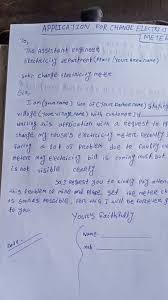 APPLICATION FOR CHANGE ELECTRI
(METER
To,
The Assistant engineer
Electricity department (place / your area name)
Sub:- change electricity meter
Sir,
I am (your name) son of (your father name)
village (your village name) with customer id
writing this application with a request to
change my house's electricity meter recently I
facing a lot of problem due to faulty
meter my electricity bill is coming much but
is not visible clearly
So, I request you to kindly pay atten
this problem of mine and please get the meter ch
as soon as possible, for this I will be forever g
to you.
Your's faithfully
Name
mob
Date